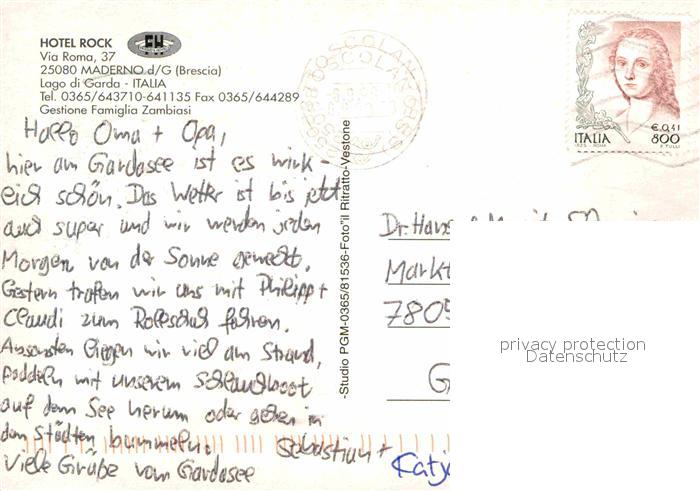 HOTEL ROCK
Via Roma, 37
25080 MADERNO d/G (Brescia)
Lago di Garda - ITALIA
Tel. 0365/643710-641135 Fax 0365/644289
Gestione Famiglia Zambiasi
Hallo Oma + Opa,
hier am Gardasee ist es wirk-
lich schön. Das Wetter ist bis jetzt
auch super und wir werden jeden
Morgen von der Sonne geweckt.
Gestern trafen wir uns mit Philipp +
Claudi zum Rollschuh fahren.
Ansonsten liegen wir viel am Strand,
paddeln mit unserem Schlauchboot
auf dem See herum oder gehen in
den Städten bummeln.
Viele Grüße vom Gardasee
Sebastian +
Katja
-Studio PGM-0365/81536-Foto"il Ritratto-Vestone
€ 0,41
ITALIA 800
Dr. Hans
Markt
7805
G
privacy protection
Datenschutz